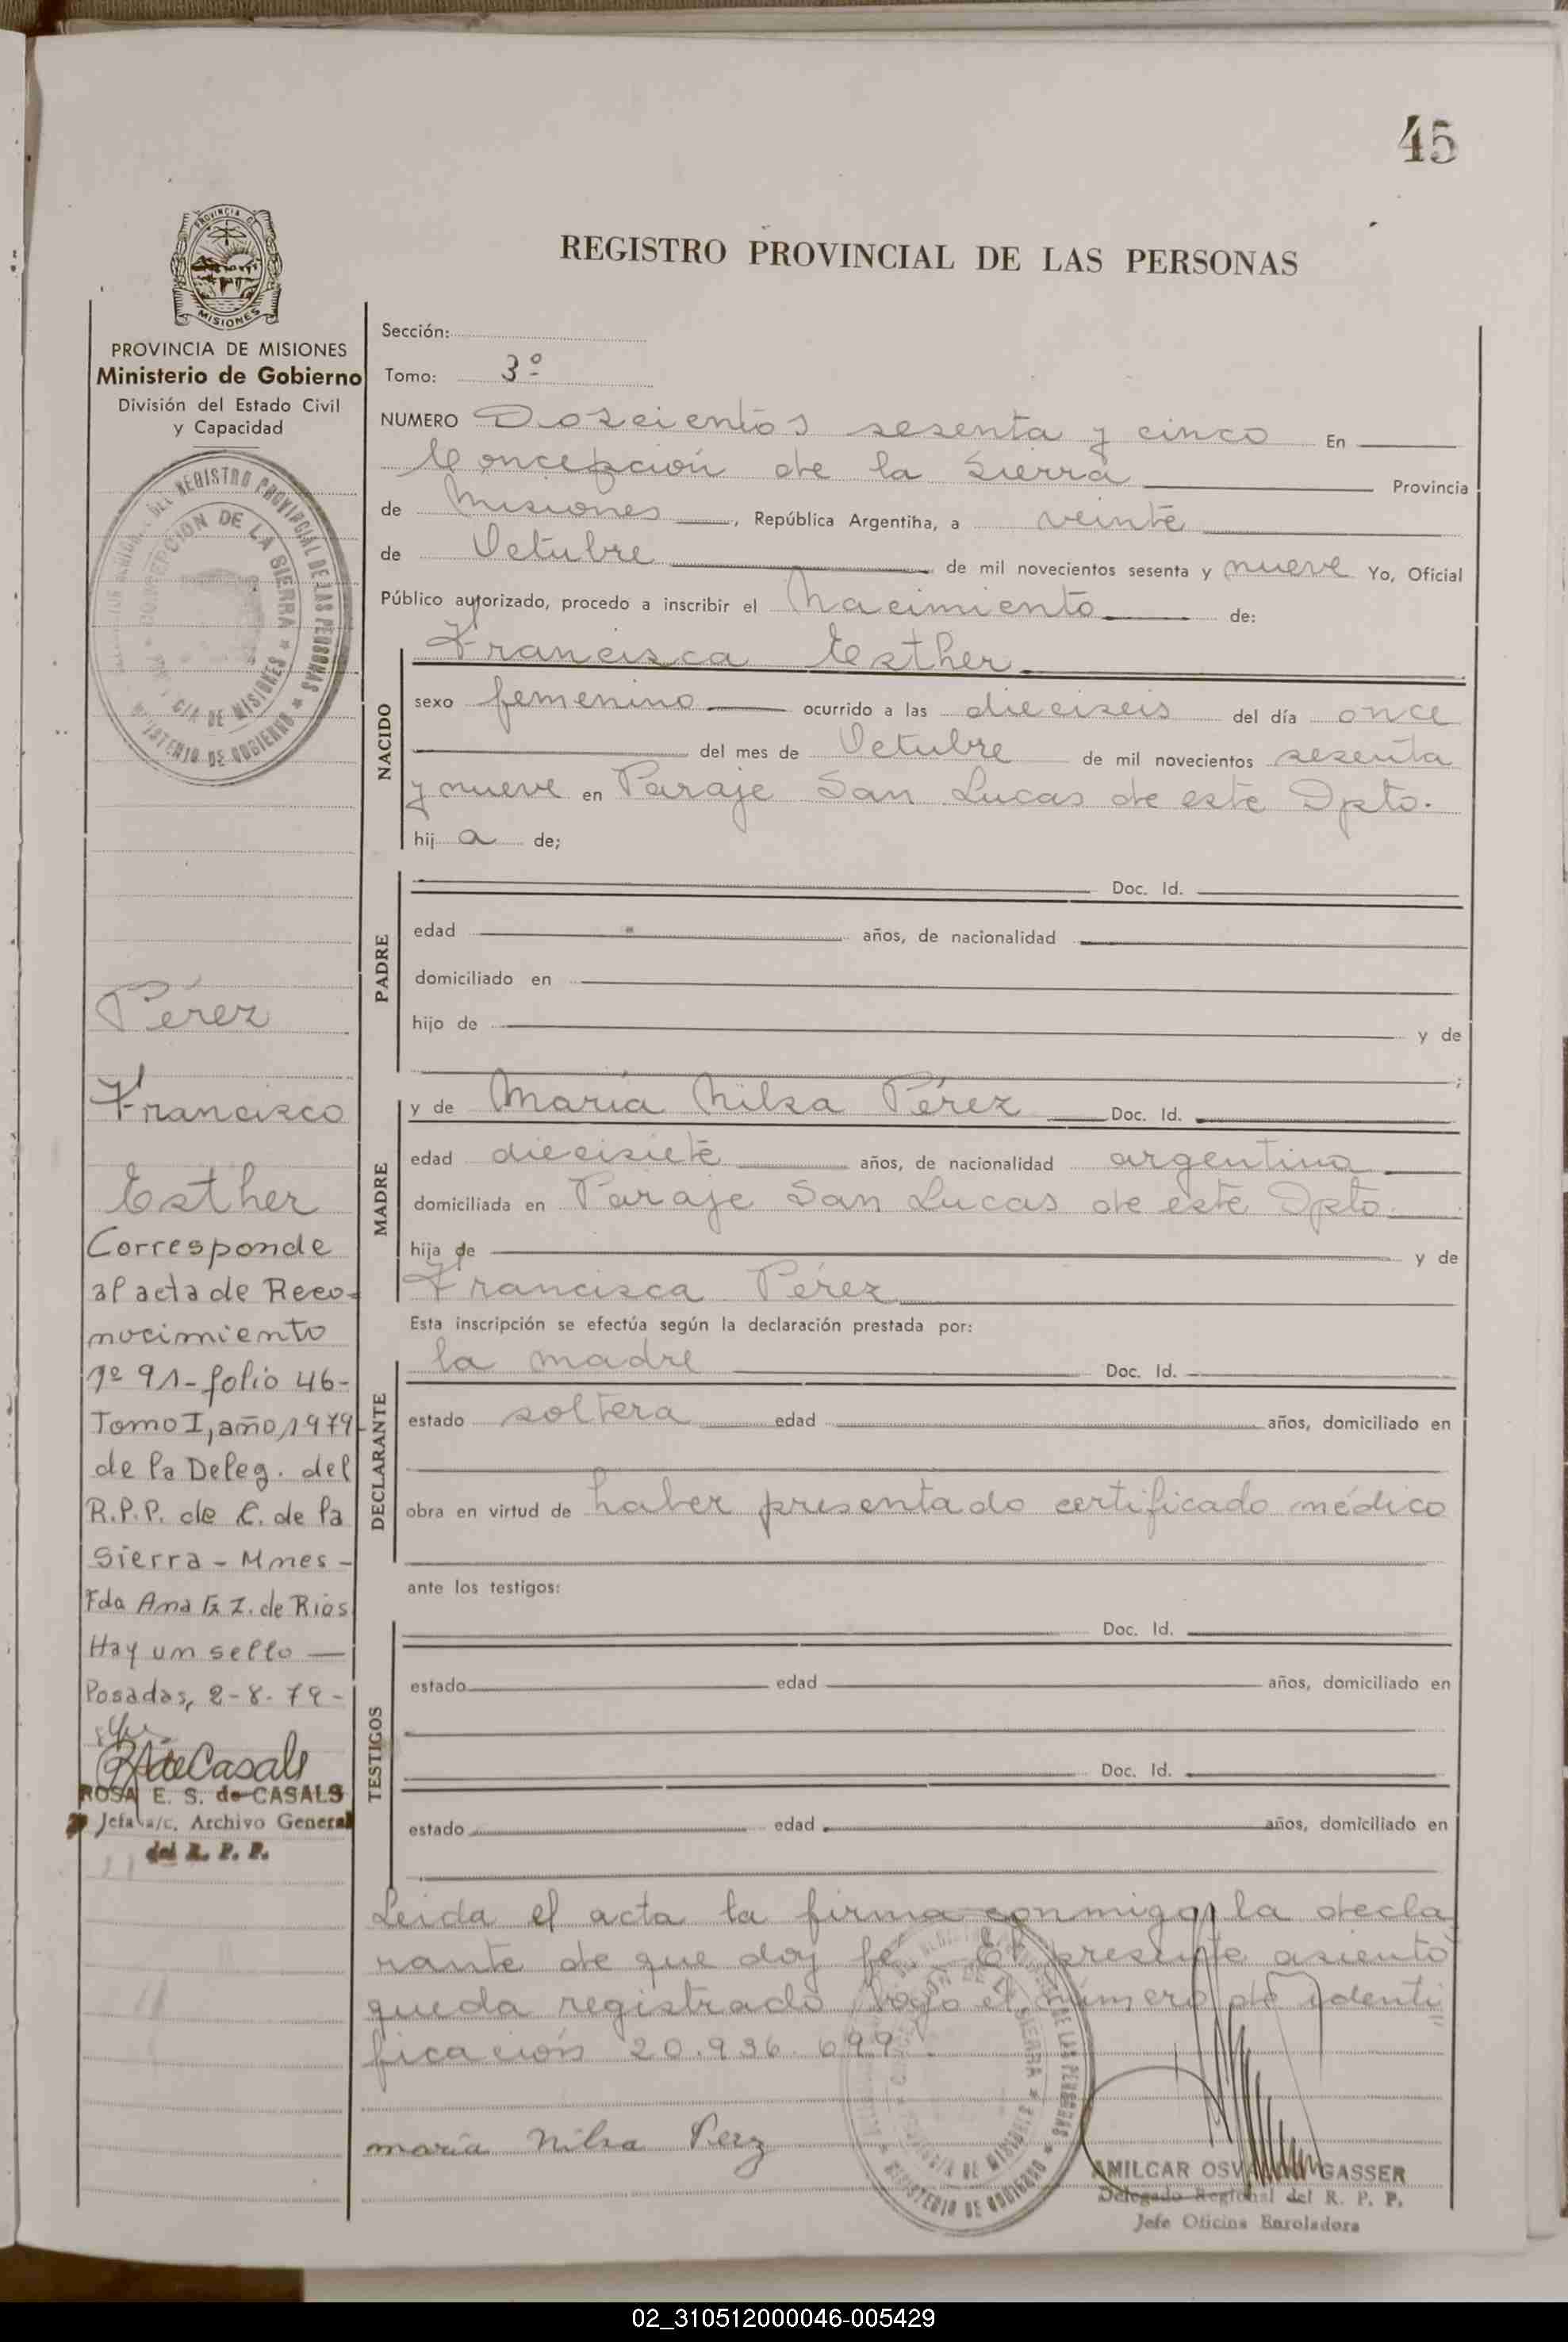 45
PROVINCIA DE
MISIONES
REGISTRO PROVINCIAL DE LAS PERSONAS
PROVINCIA DE MISIONES
Ministerio de Gobierno
División del Estado Civil
y Capacidad
DEL REGISTRO PROVINCIAL DE LAS PERSONAS
MINISTERIO DE GOBIERNO
CONCEPCION DE LA SIERRA
PROVINCIA DE MISIONES
Pérez
Francisco
Esther
Corresponde
al acta de Reco-
nocimiento
nº 91-folio 46-
Tomo I, año 1979-
de la Deleg. del
R.P.P. de C. de la
Sierra - Mnes -
Fdo Ana Z. de Rios
Hay un sello —
Posadas, 2-8-79-
de Casals
ROSA E. S. de CASALS
Jefa a/c. Archivo General
del R. P. P.
Sección:
Tomo: 3º
NUMERO Doscientos sesenta y cinco En
Concepción de la Sierra Provincia
de Misiones, República Argentina, a veinte
de Octubre de mil novecientos sesenta y nueve Yo, Oficial
Público autorizado, procedo a inscribir el Nacimiento de:
NACIDO
Francisca Esther
sexo femenino ocurrido a las dieciseis del día once
del mes de Octubre de mil novecientos sesenta
y nueve en Paraje San Lucas de este Dpto.
hij a de;
PADRE
Doc. Id.
edad años, de nacionalidad
domiciliado en
hijo de y de
;
MADRE
y de María Nilsa Pérez Doc. Id.
edad diecisiete años, de nacionalidad argentina
domiciliada en Paraje San Lucas de este Dpto.
hija de y de
Francisca Pérez
Esta inscripción se efectúa según la declaración prestada por:
DECLARANTE
la madre Doc. Id.
estado soltera edad años, domiciliado en
obra en virtud de haber presentado certificado médico
ante los testigos:
TESTIGOS
Doc. Id.
estado edad años, domiciliado en
Doc. Id.
estado edad años, domiciliado en
Leida el acta la firma conmigo la decla
rante de que doy fe. El presente asiento
queda registrado bajo el número de identi
ficación 20.936.699.
maria Nilsa Perz
SIERRA
DE LAS PERSONAS
PROVINCIA DE MISIONES
MINISTERIO DE GOBIERNO
AMILCAR GASSER
Delegado Regional del R. P. P.
Jefe Oficina Enroladora
02_310512000046-005429